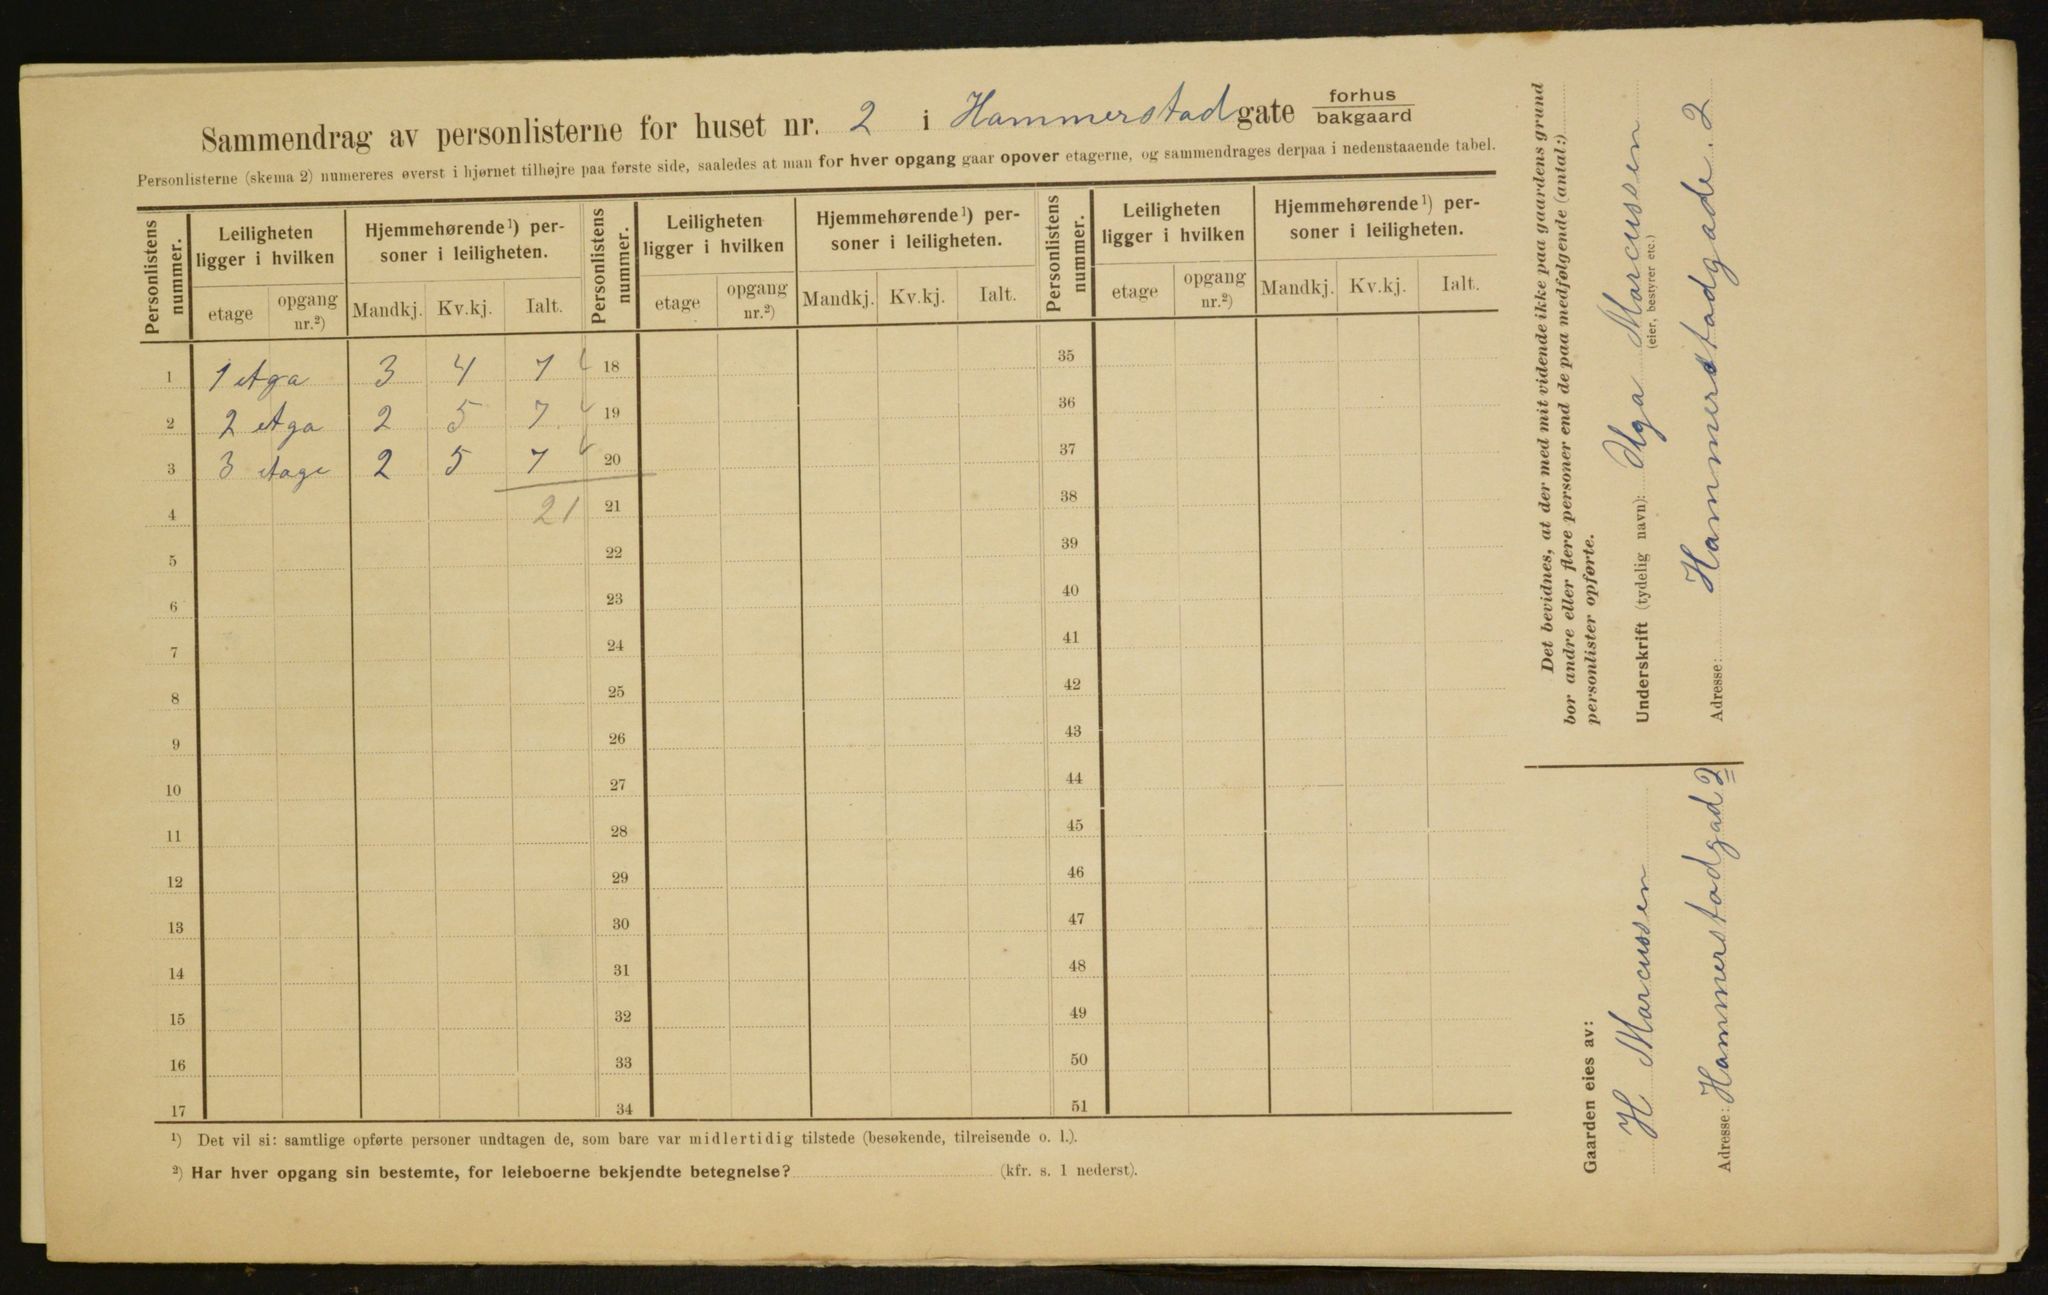 Sammendrag av personlisterne for huset nr. 2 i Hammerstadgate forhus
bakgaard
Personlisterne (skema 2) numereres øverst i hjørnet tilhøjre paa første side, saaledes at man for hver opgang gaar opover etagerne, og sammendrages derpaa i nedenstaaende tabel.
Personlistens nummer. Leiligheten ligger i hvilken Hjemmehørende¹) personer i leiligheten. Personlistens nummer. Leiligheten ligger i hvilken Hjemmehørende¹) personer i leiligheten. Personlistens nummer. Leiligheten ligger i hvilken Hjemmehørende¹) personer i leiligheten.
etage opgang nr.²) Mandkj. Kv.kj. Ialt. etage opgang nr.²) Mandkj. Kv.kj. Ialt. etage opgang nr.²) Mandkj. Kv.kj. Ialt.
1 1 etga 3 4 7 18 35
2 2 etga 2 5 7 19 36
3 3 etage 2 5 7 20 37
4 21 21 38
5 22 39
6 23 40
7 24 41
8 25 42
9 26 43
10 27 44
11 28 45
12 29 46
13 30 47
14 31 48
15 32 49
16 33 50
17 34 51
¹) Det vil si: samtlige opførte personer undtagen de, som bare var midlertidig tilstede (besøkende, tilreisende o. l.).
²) Har hver opgang sin bestemte, for leieboerne bekjendte betegnelse? (kfr. s. 1 nederst).
Det bevidnes, at der med mit vidende ikke paa gaardens grund
bor andre eller flere personer end de paa medfølgende (antal:)
personlister opførte.
Underskrift (tydelig navn): Marcussen
(eier, bestyrer etc.)
Adresse: Hammerstadgade. 2
Gaarden eies av:
H Marcussen
Adresse: Hammerstadgad 2